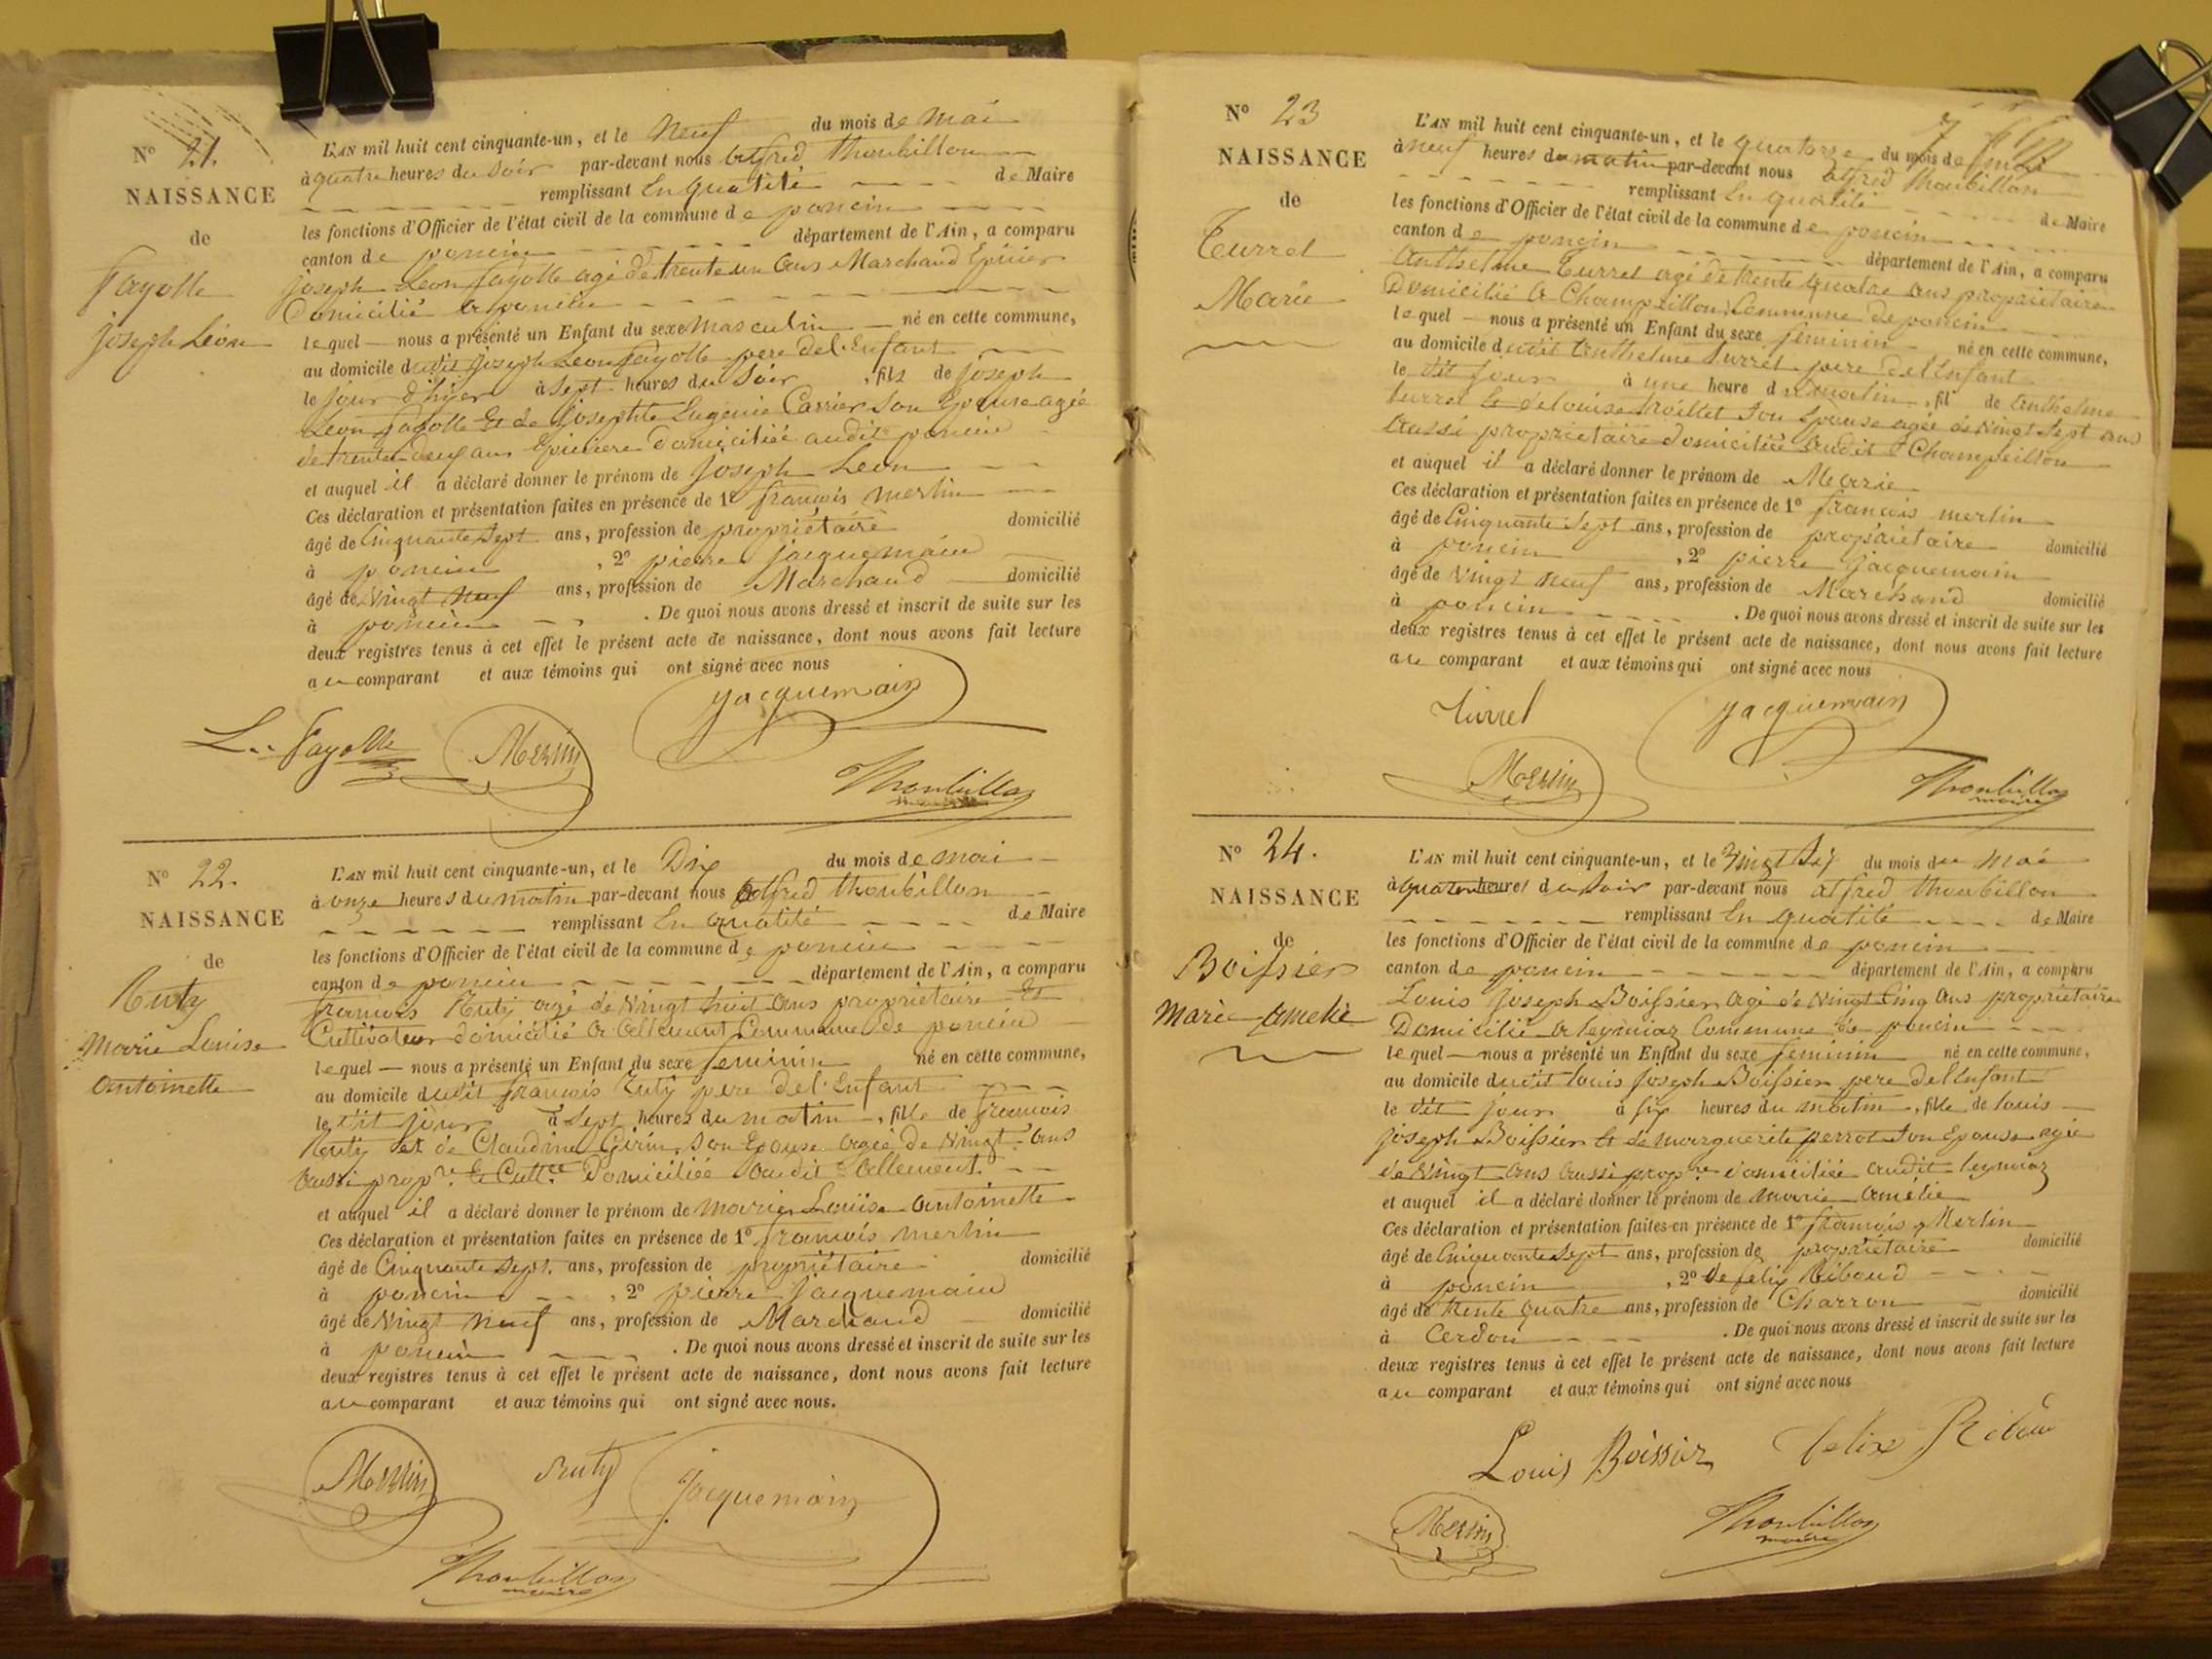 N° 21.
NAISSANCE
de
Fayolle
joseph Léon
L'AN mil huit cent cinquante-un, et le Neuf du mois de mai
à quatre heures du Soir par-devant nous alfred thoubillon
remplissant En qualité de Maire
les fonctions d'Officier de l'état civil de la commune de poncin
canton de poncin département de l'Ain, a comparu
joseph Léon fayolle agé de trente un ans Marchand Epicier
Domicilié a poncin
lequel — nous a présenté un Enfant du sexe masculin né en cette commune,
au domicile dudit joseph Leon fayolle pere de l'Enfant
le jour d'hyer à sept heures du Soir, fils de joseph
Leon fayolle Et de josephte Eugenie Carrier son Epouse agée
de trente deux ans Epiciere Domiciliée audit poncin
et auquel il a déclaré donner le prénom de joseph Leon
Ces déclaration et présentation faites en présence de 1° francois merlin
âgé de Cinquante Sept ans, profession de propriétaire domicilié
à poncin, 2° pierre jacquemain
âgé de Vingt Neuf ans, profession de Marchand domicilié
à poncin. De quoi nous avons dressé et inscrit de suite sur les
deux registres tenus à cet effet le présent acte de naissance, dont nous avons fait lecture
au comparant et aux témoins qui ont signé avec nous
jacquemain
L. Fayolle Merlin
Thoubillon
maire
N° 22.
NAISSANCE
de
Ruty
Marie Louise
antoinette
L'AN mil huit cent cinquante-un, et le Dix du mois de mai
à onze heures du matin par-devant nous alfred thoubillon
remplissant En qualité de Maire
les fonctions d'Officier de l'état civil de la commune de poncin
canton de poncin département de l'Ain, a comparu
francois Ruty agé de Vingt huit ans propriétaire Et
Cultivateur domicilié a allement Commune de poncin
lequel — nous a présenté un Enfant du sexe feminin né en cette commune,
au domicile dudit francois Ruty pere de l'Enfant
le dit jour à Sept heures du matin, fille de francois
Ruty et de Claudine Girin son Epouse agée de Vingt ans
aussi propre. Et Cultce. Domiciliée audit allement.
et auquel il a déclaré donner le prénom de marie Louise antoinette
Ces déclaration et présentation faites en présence de 1° francois merlin
âgé de Cinquante Sept ans, profession de propriétaire domicilié
à poncin, 2° pierre jacquemain
âgé de Vingt Neuf ans, profession de Marchand domicilié
à poncin. De quoi nous avons dressé et inscrit de suite sur les
deux registres tenus à cet effet le présent acte de naissance, dont nous avons fait lecture
au comparant et aux témoins qui ont signé avec nous.
Merlin Ruty Jacquemain
Thoubillon
maire
N° 23
NAISSANCE
de
Turrel
Marie
L'AN mil huit cent cinquante-un, et le quatorze du mois de mai
à neuf heures du matin par-devant nous alfred thoubillon
remplissant En qualité de Maire
les fonctions d'Officier de l'état civil de la commune de poncin
canton de poncin département de l'Ain, a comparu
Anthelme Turrel agé de trente quatre ans propriétaire
Domicilié a Champeillon Commune de poncin
lequel — nous a présenté un Enfant du sexe feminin né en cette commune,
au domicile dudit Anthelme Turrel pere de l'Enfant
le dit jour à une heure du matin, fil de Anthelme
turrel Et de louise son Epouse agée de Vingt Sept ans
aussi propriétaire domiciliée audit Champeillon
et auquel il a déclaré donner le prénom de Marie
Ces déclaration et présentation faites en présence de 1° francois merlin
âgé de Cinquante Sept ans, profession de propriétaire domicilié
à poncin, 2° pierre jacquemain
âgé de Vingt Neuf ans, profession de Marchand domicilié
à poncin. De quoi nous avons dressé et inscrit de suite sur les
deux registres tenus à cet effet le présent acte de naissance, dont nous avons fait lecture
au comparant et aux témoins qui ont signé avec nous
Turrel jacquemain
Merlin Thoubillon
maire
N° 24.
NAISSANCE
de
Boissier
Marie amelie
L'AN mil huit cent cinquante-un, et le Vingt Six du mois du mai
à quatre heures du Soir par-devant nous alfred thoubillon
remplissant En qualité de Maire
les fonctions d'Officier de l'état civil de la commune de poncin
canton de poncin département de l'Ain, a comparu
Louis joseph Boissier agé de Vingt Cinq ans propriétaire
Domicilié a leymiaz Commune de poncin
lequel — nous a présenté un Enfant du sexe feminin né en cette commune,
au domicile dudit louis joseph Boissier pere de l'Enfant
le dit jour à six heures du matin, fille de louis
joseph Boissier Et de marguerite perrot son Epouse agée
de Vingt ans aussi propre domiciliée audit leymiaz
et auquel il a déclaré donner le prénom de marie amélie
Ces déclaration et présentation faites en présence de 1° francois Merlin
âgé de Cinquante Sept ans, profession de propriétaire domicilié
à poncin, 2° felix Riboud
âgé de trente quatre ans, profession de Charron domicilié
à Cerdon. De quoi nous avons dressé et inscrit de suite sur les
deux registres tenus à cet effet le présent acte de naissance, dont nous avons fait lecture
au comparant et aux témoins qui ont signé avec nous
Louis Boissier felix Riboud
Merlin Thoubillon
maire